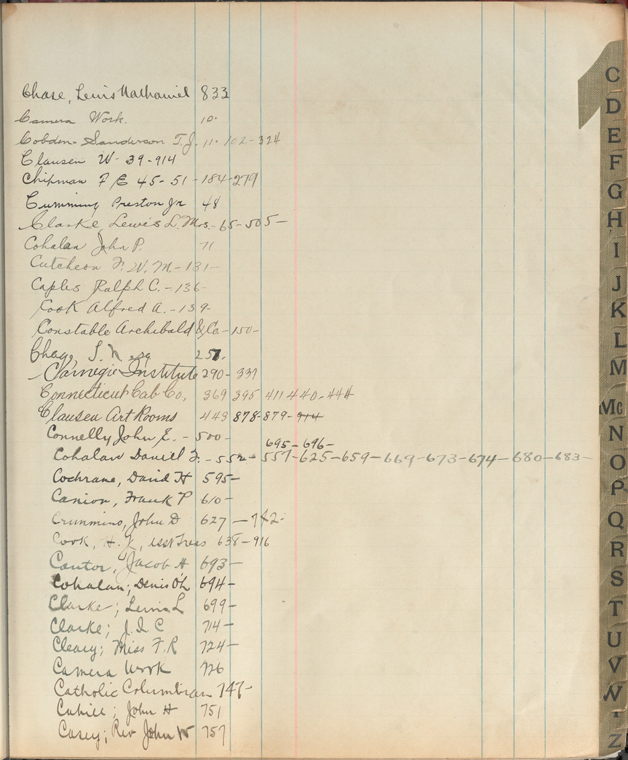 Chase, Lewis Nathaniel 833
Camera Work. 10.
Cobden-Sanderson T.J. 11. 102-324
Clausen W. 39-914
Chipman F E 45-51-184-279
Cumming Preston Jr 48
Clarke, Lewis L. Mrs. 65-505-
Cohalan John P. 71
Cutcheon F. W. M-131-
Caples Ralph C. -136-
Cook Alfred A. -139-
Constable Archibald & Co-150-
257.
Carnegie Institute 290-337
Connecticut Cab Co, 369 395 411-440-444
Clausen Art Rooms 443 878-879-914
Connelly John E. - 500-
695-696-
Cohalan Daniel F. -552-557-625-659-669-673-674-680-683-
Cochrane, David H 595-
Canion, Frank P 610-
Crummins, John D 627-742-
Cook, 638-916
Cantor, Jacob A 693-
Cohalan; Denis O'L 694-
Clarke; Lewis L 699-
Clarke; J.I.C 714-
Cleary; Miss F.R 724-
Camera Work 726
Catholic Columbian 747-
Cahill; John H 751
Casey; Rev John W 757
C
D
E
F
G
H
I
J
K
L
M
Mc
N
O
P
Q
R
S
T
U
V
W
Y
Z